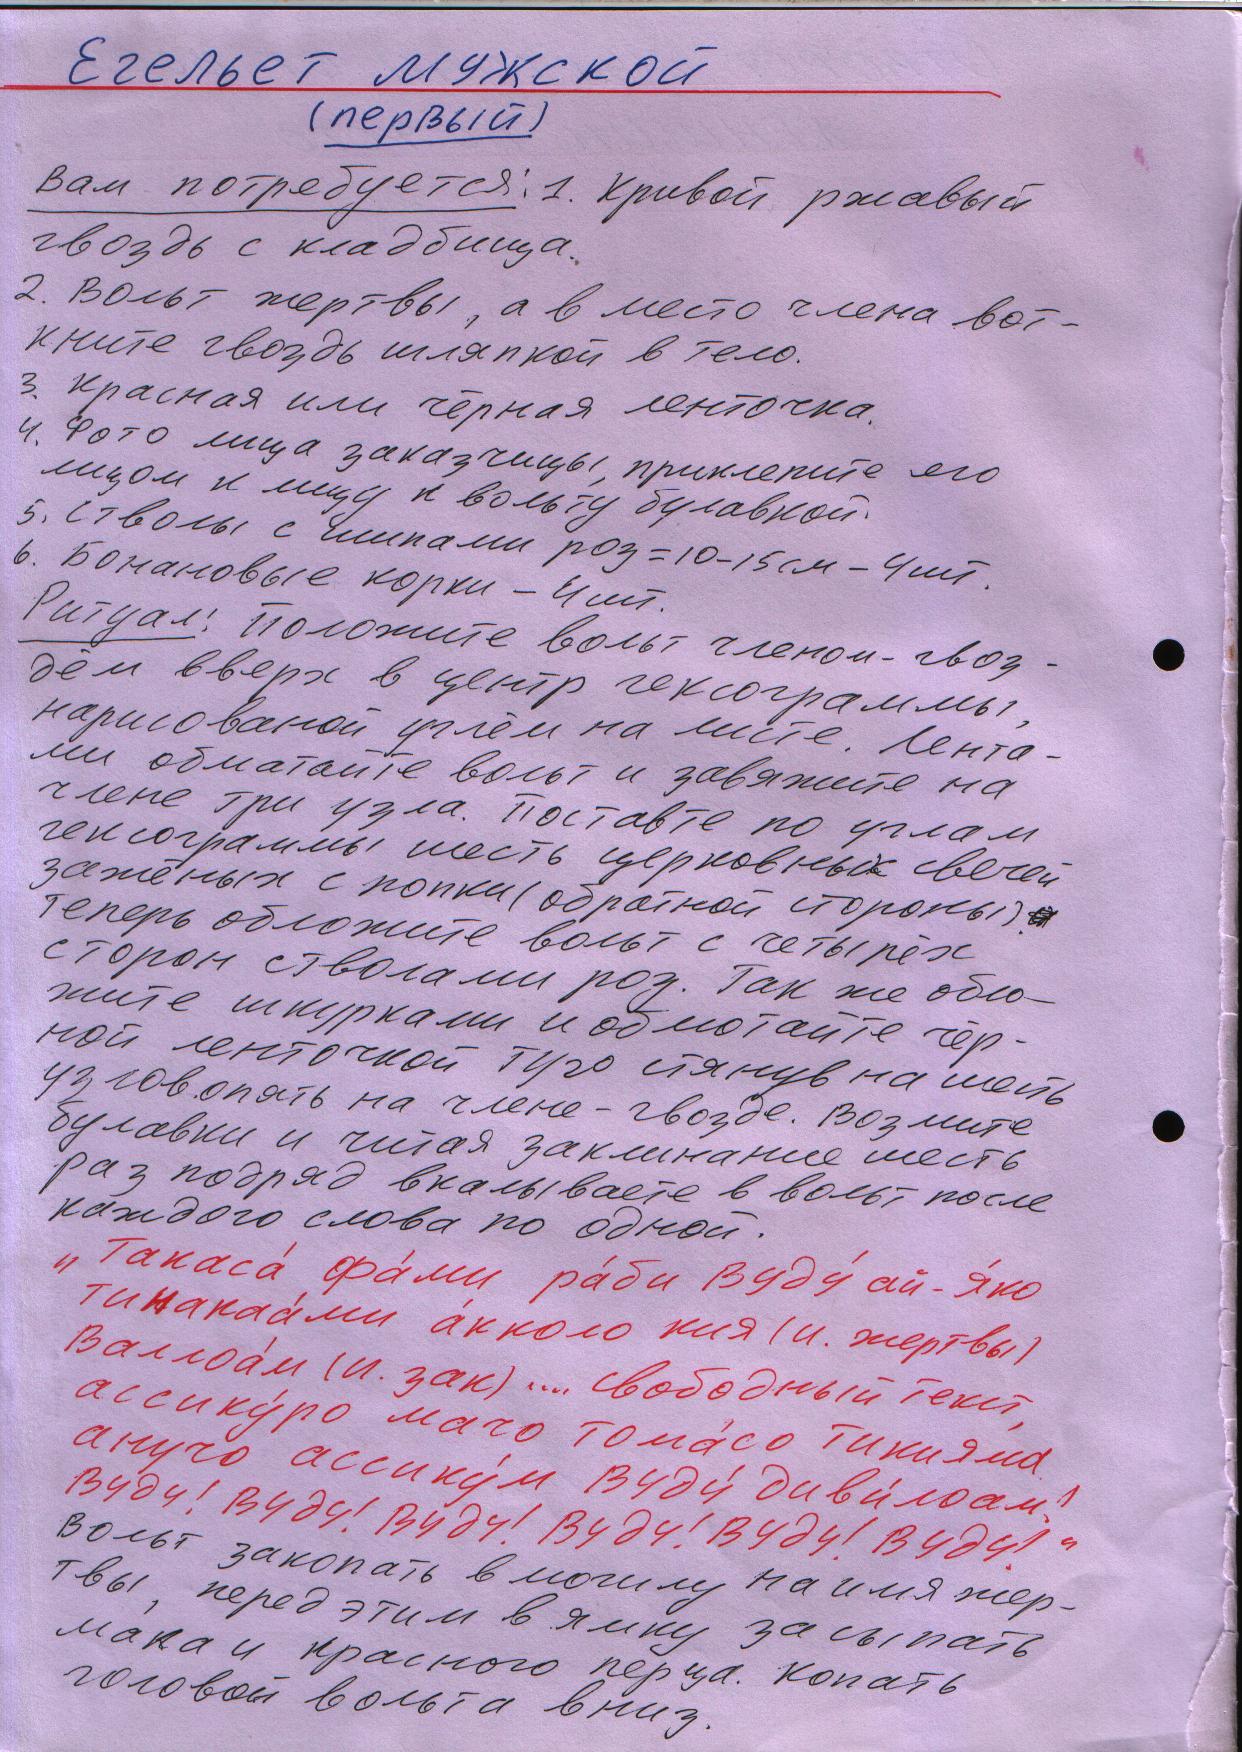 Егельет мужской
(первый)
Вам потребуется: 1. Кривой ржавый
гвоздь с кладбища.
2. Вольт жертвы, а в место члена вот-
кните гвоздь шляпкой в тело.
3. Красная или чёрная ленточка.
4. Фото лица заказчицы, приклепите его
лицом к лицу к вольту булавкой.
5. Стволы с шипами роз=10-15см - 4шт.
6. Бонановые корки - 4шт.
Ритуал: Положите вольт членом-гвоз-
дём вверх в центр гексограммы,
нарисованой углём на листе. Лента-
ми обматайте вольт и завяжите на
члене три узла. Поставте по углам
гексограммы шесть церковных свечей
зажёных с попки (обратной стороны).
Теперь обложите вольт с четырёх
сторон стволами роз. Так же обло-
жите шкурками и обмотайте чёр-
ной ленточкой туго стянув на шесть
узлов.опять на члене-гвозде. Возмите
булавки и читая заклинание шесть
раз подряд вкалываете в вольт после
каждого слова по одной.
„Такаса́ фа́ми ра́би Вуду́ ай-я́ко
тинакаа́ми а́кколо кия (и. жертвы)
Валлоа́м (и. зак) .... свободный текст,
ассику́ро мачо тома́со тикияма
анучо ассику́м Вуду́ диви́лоам!
Вуду! Вуду! Вуду! Вуду! Вуду! Вуду!"
Вольт закопать в могилу на имя жер-
твы, перед этим в ямку засыпать
ма́ка и красного перца. Копать
головой вольта вниз.